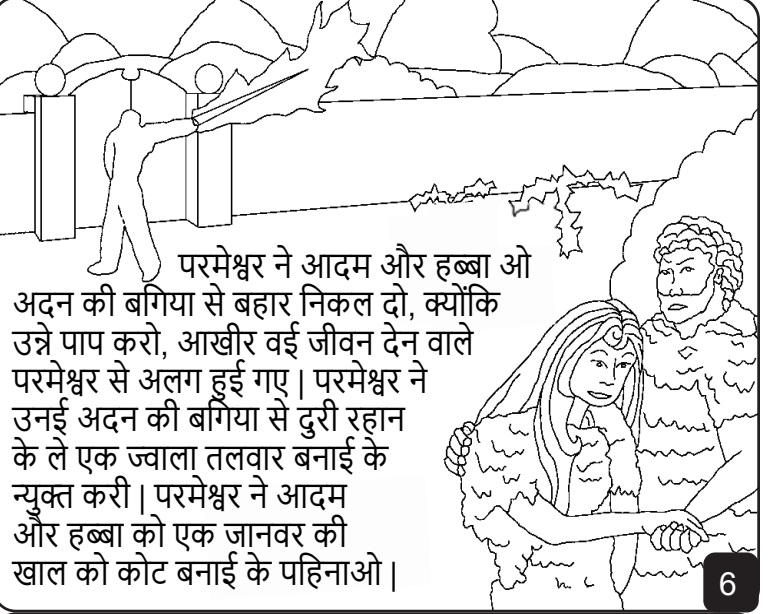 परमेश्वर ने आदम और हब्बा ओ
अदन की बगिया से बहार निकल दो, क्योंकि
उन्ने पाप करो, आखीर वई जीवन देन वाले
परमेश्वर से अलग हुई गए | परमेश्वर ने
उनई अदन की बगिया से दुरी रहान
के ले एक ज्वाला तलवार बनाई के
न्युक्त करी | परमेश्वर ने आदम
और हब्बा को एक जानवर की
खाल को कोट बनाई के पहिनाओ |
6